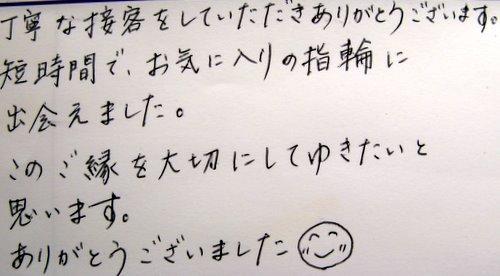 丁寧な接客をしていただきありがとうございます。
短時間で、お気に入りの指輪に
出会えました。
このご縁を大切にしてゆきたいと
思います。
ありがとうございました